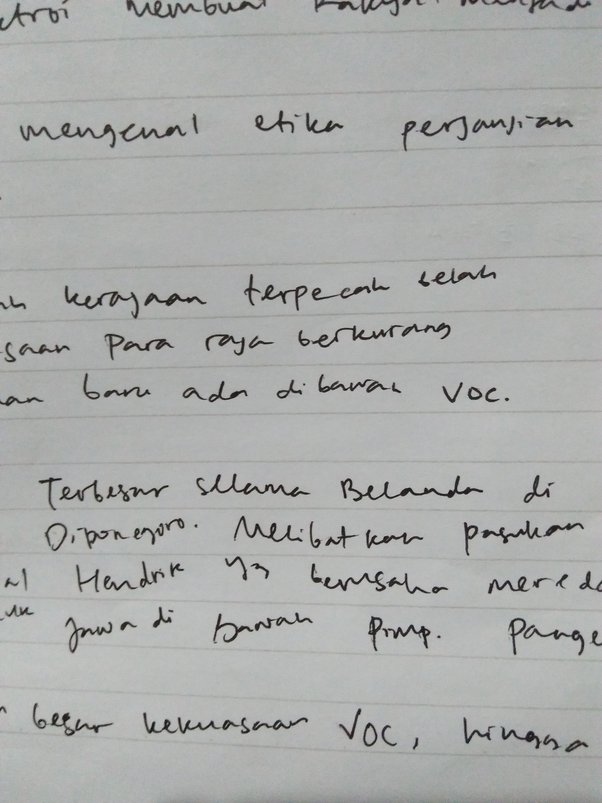 membuat rakyat menjadi
mengenal etika perjanjian
kerajaan terpecah belah
saan para raja berkurang
an baru ada dibawah VOC.
Terbesar selama Belanda di
Diponegoro. Melibatkan pasukan
al Hendrik yg berusaha mereda
Jawa di bawah pimp. Pange
besar kekuasaan VOC, hingga